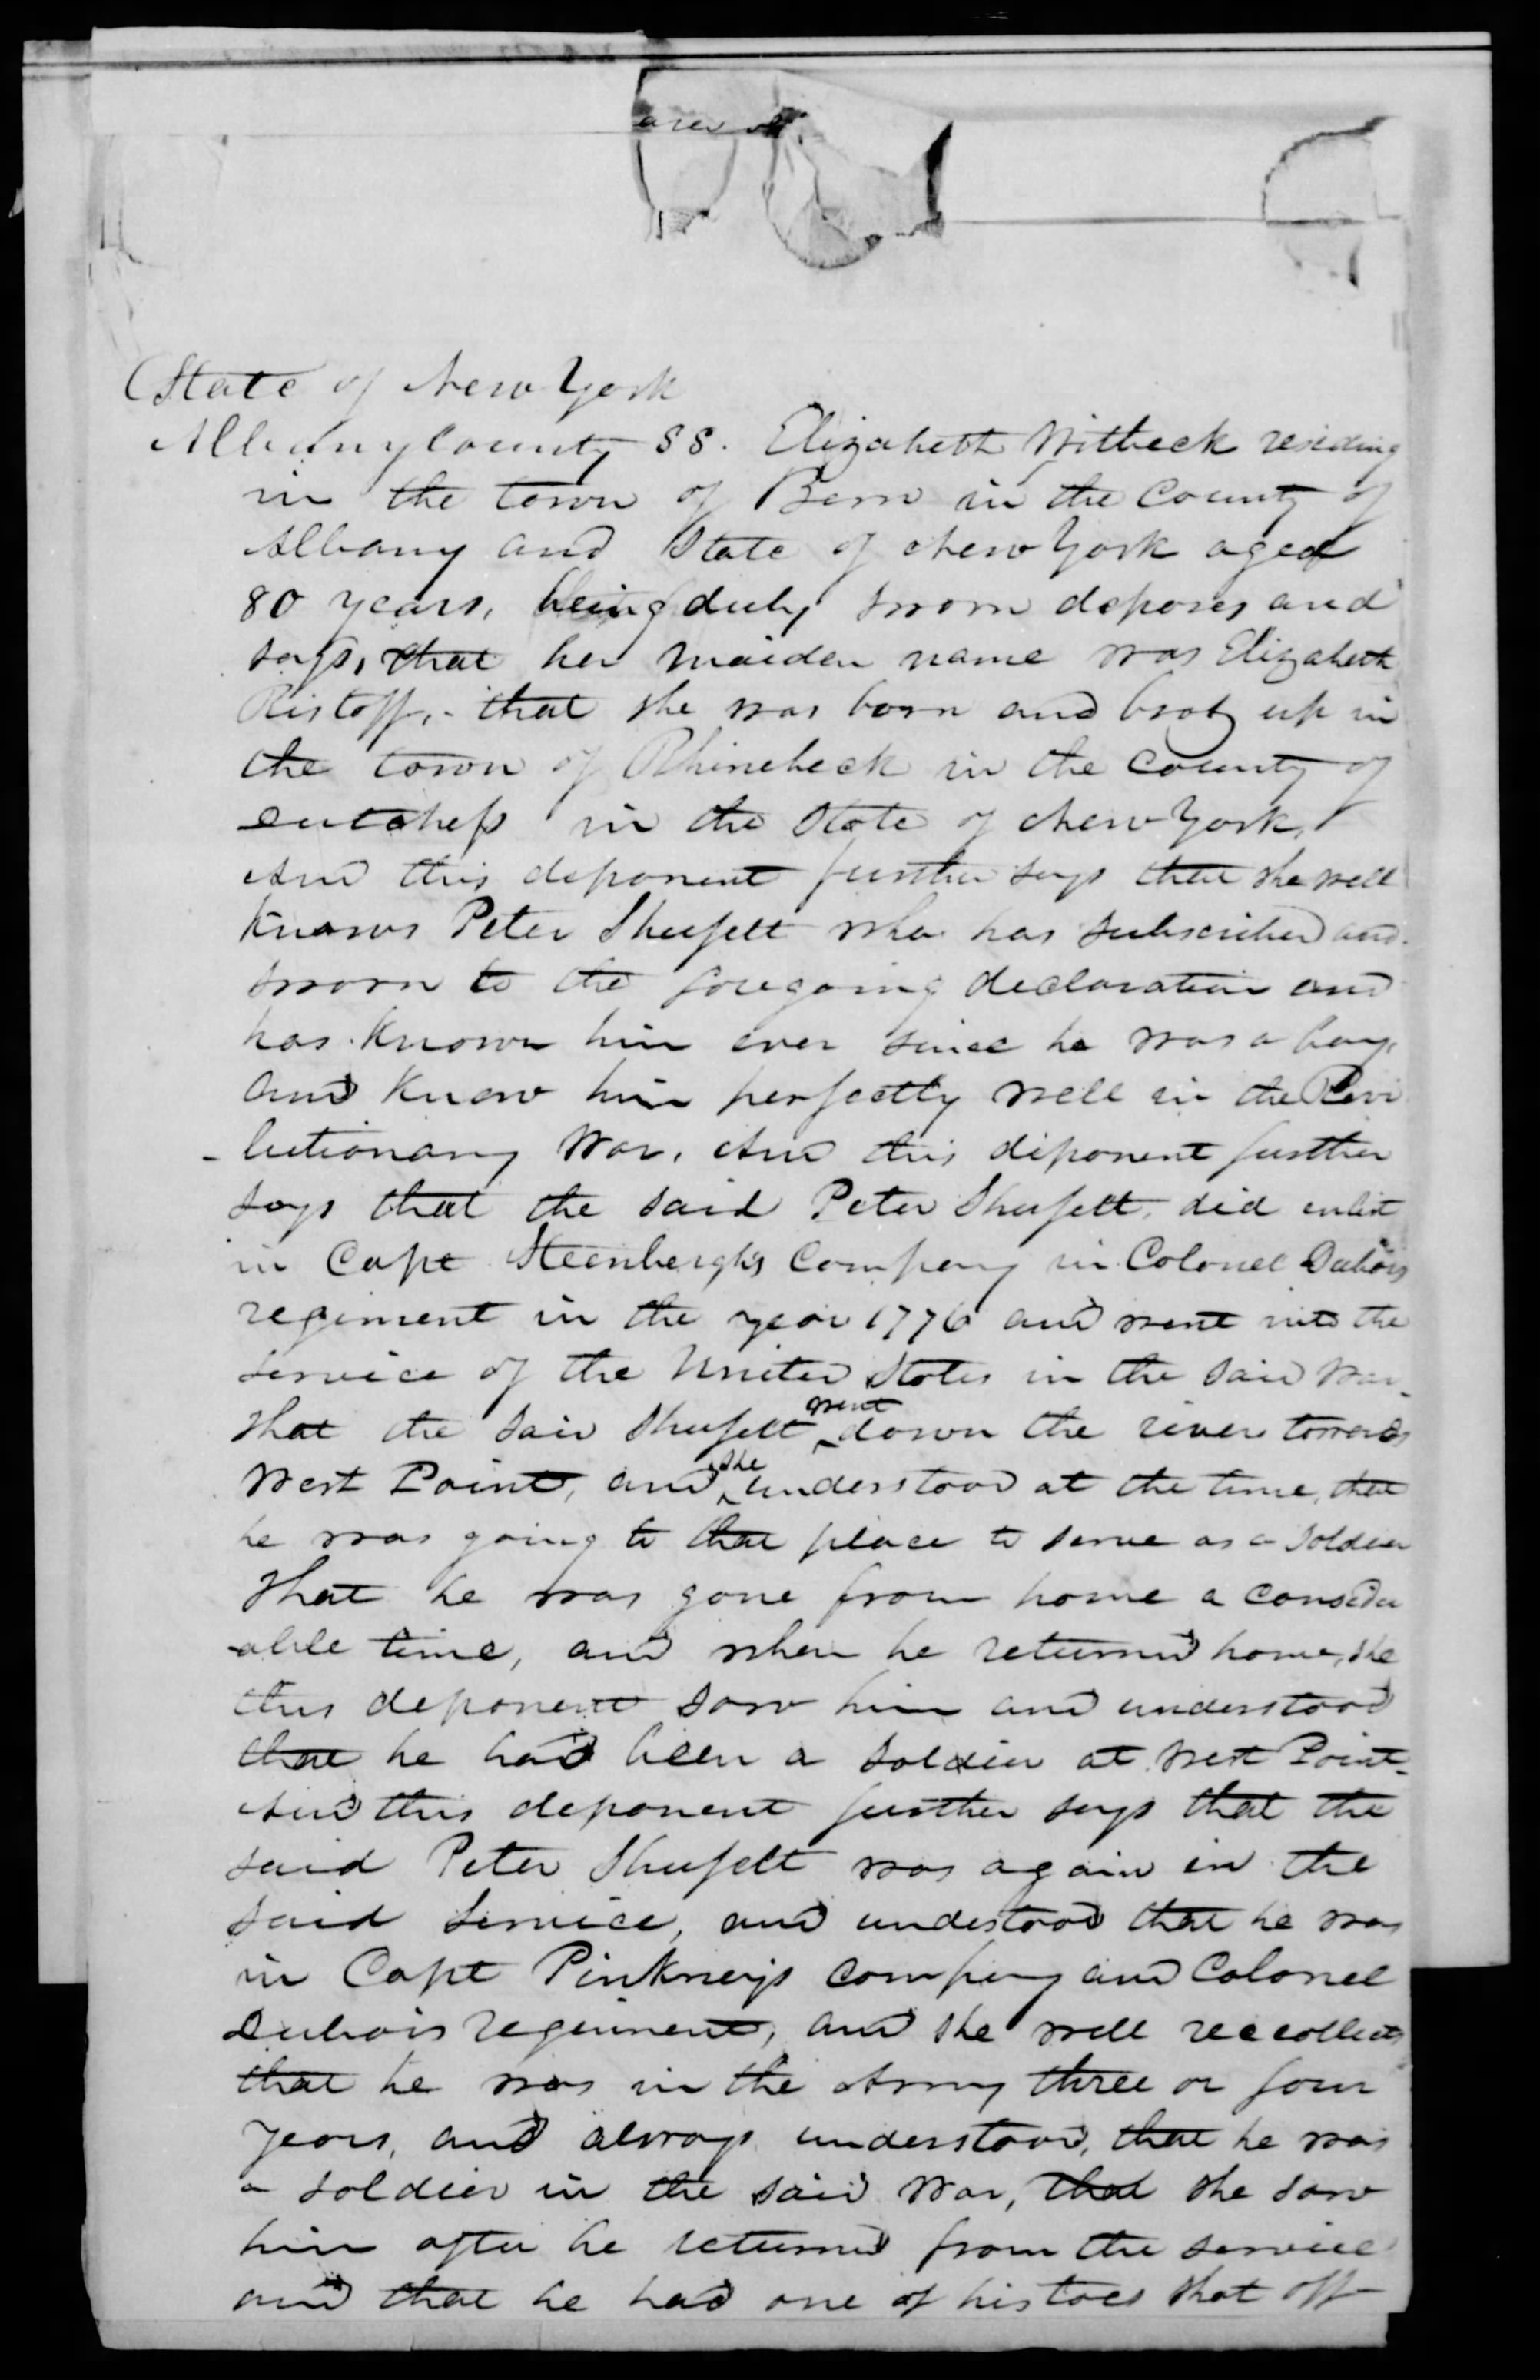 State of New York
Albany County SS. Elizabeth Witbeck residing
in the town of Bern in the County of
Albany and State of New York aged
80 years, being duly sworn deposes and
says, that her maiden name was Elizabeth
Ristoff, - that she was born and brot up in
the town of Rhinebeck in the County of
Dutchess in the State of New York,
And this deponent further says that she well
knows Peter Shufelt who has subscribed and
sworn to the foregoing declaration and
has known him ever since he was a boy,
and knew him perfectly well in the Revo
-lutionary War. And this deponent further
says that the said Peter Shufelt did enlist
in Capt Steenberghs Company in Colonel Dubois
regiment in the year 1776 and went into the
service of the United States in the said War -
that the said Shufelt went down the river towards
West Point, and she understood at the time, that
he was going to that place to serve as a Soldier
That he was gone from home a consider
-able time, and when he returned home, she
this deponent saw him and understood
that he had been a soldier at West Point -
And this deponent further says that the
said Peter Shufelt was again in the
said service, and understood that he was
in Capt Pinkneys company and Colonel
Dubois regiment, and she well reccollects
that he was in the Army three or four
years, and always understood, that he was
a soldier in the said War, that she saw
him after he returned from the service
and that he had one of his toes shot off